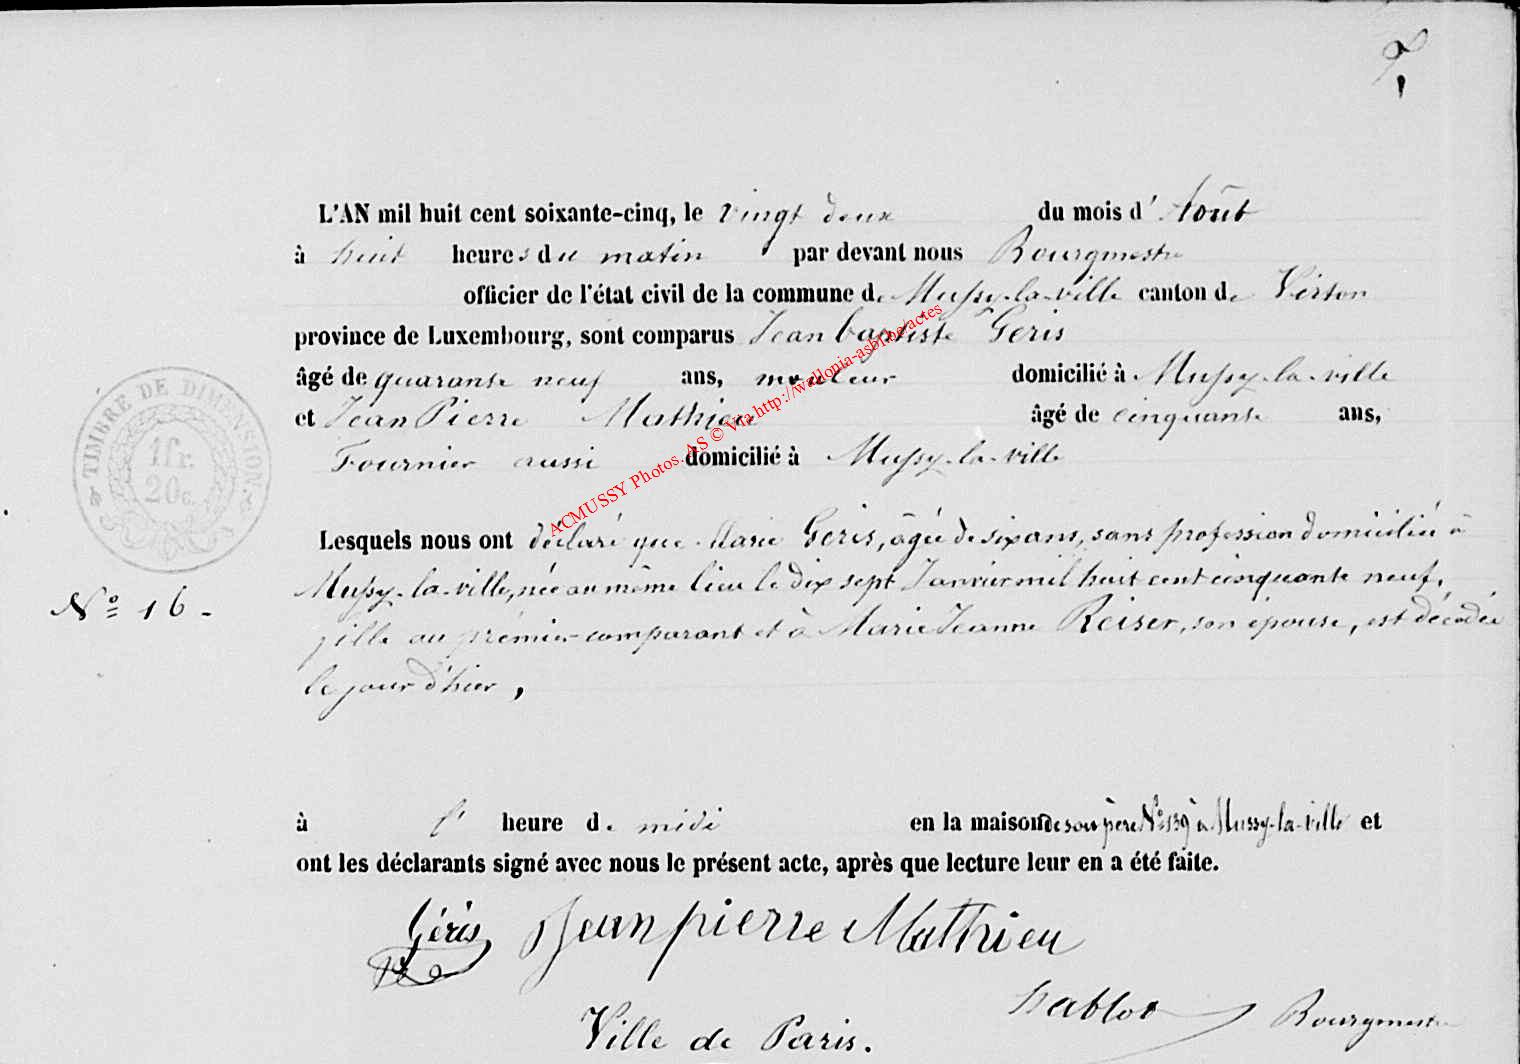 L'AN mil huit cent soixante-cinq, le vingt deux du mois d'Août
à huit heures du matin par devant nous Bourgmestre
officier de l'état civil de la commune de Mussy-la-ville canton de Virton
province de Luxembourg, sont comparus Jean baptiste Geris
âgé de quarante neuf ans, mouleur domicilié à Mussy-la-ville
et Jean Pierre Mathieu âgé de cinquante ans,
Fournier aussi domicilié à Mussy-la-ville
TIMBRE DE DIMENSION
1 fr.
20 c.
ACMUSSY Photos. AS © Via http://wallonia-asbl.be/actes
Lesquels nous ont déclaré que Marie Geris, âgée de six ans, sans profession domiciliée à
Mussy-la-ville, née au même lieu le dix sept Janvier mil huit cent cinquante neuf,
N° 16-
fille au premier comparant et à Marie Jeanne Reiser, son épouse, est décédée
le jour d'hier,
à l' heure de midi en la maison de son père N° 139 à Mussy-la-ville et
ont les déclarants signé avec nous le présent acte, après que lecture leur en a été faite.
Géris Jean pierre Mathieu
Hablot Bourgmestre
Ville de Paris.